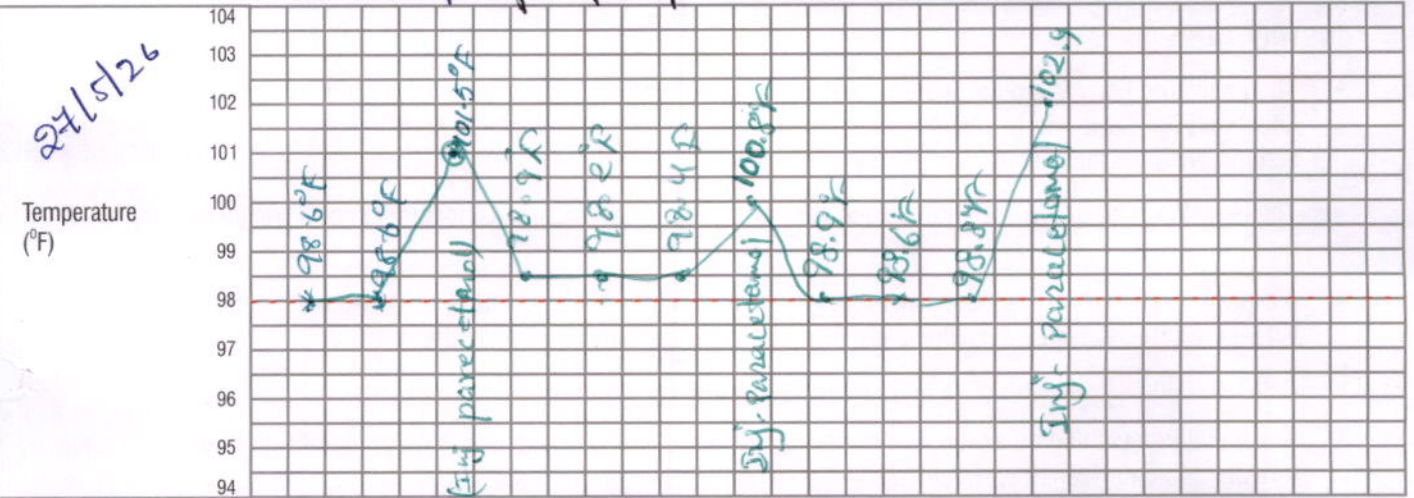 27/5/26
Temperature
(°F)
104
103
102
101
100
99
98
97
96
95
94
98.6°F
98.6°F
101.5°F
(Inj paracetamol)
98.9°F
98.2°F
98.4°F
100.8°F
Inj. Paracetamol
98.9°F
98.6°F
98.8°F
102.9
Inj- Paracetamol